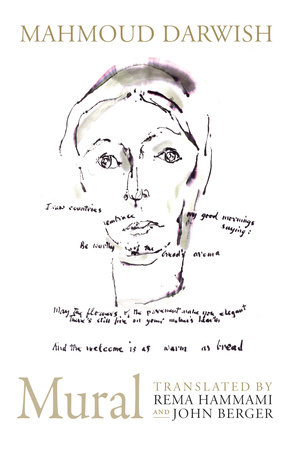 MAHMOUD DARWISH
I saw countries
embrace
my good mornings
saying:
Be worthy of the bread's aroma
May the flowers of the pavement make you elegant
there's still fire on your mother's hearth
And the welcome is as warm as bread
Mural
TRANSLATED BY
REMA HAMMAMI
AND JOHN BERGER